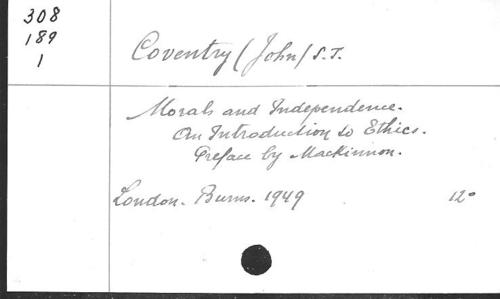 308
189
1
Coventry (John) S.J.
Morals and Independence.
An Introduction to Ethics.
Preface by Mackinnon.
London. Burns. 1949 12°